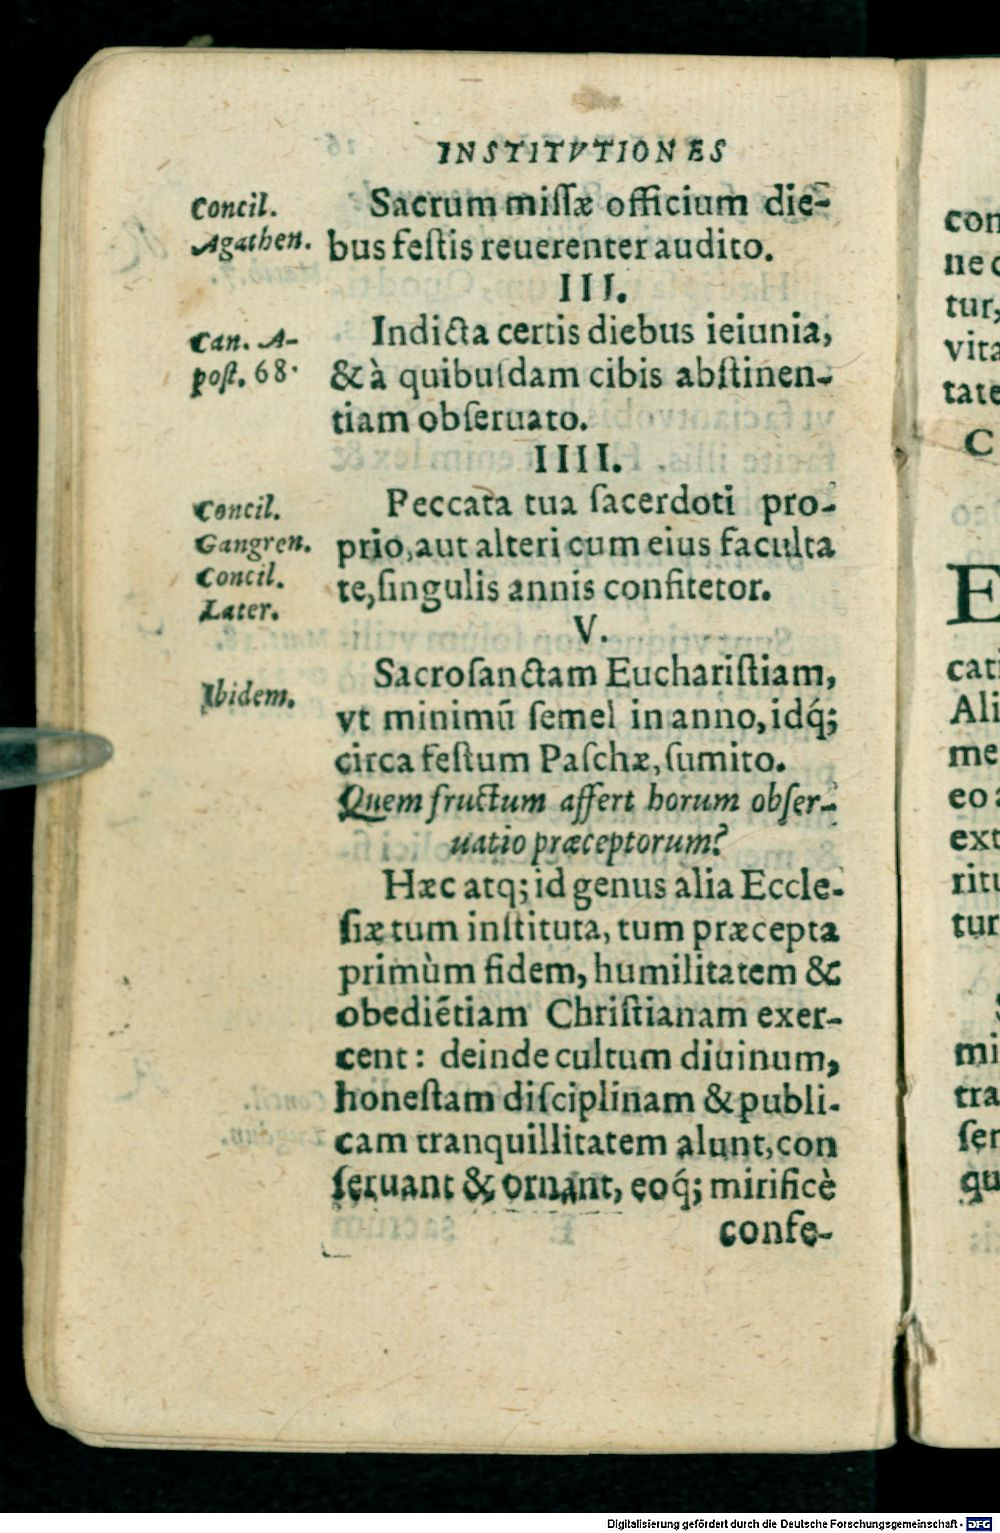 INSTITVTIONES
Concil.
Agathen.
Sacrum miſſæ officium die-
bus feſtis reuerenter audito.
III.
Can. A-
poſt. 68.
Indicta certis diebus ieiunia,
& à quibuſdam cibis abſtinen-
tiam obſeruato.
IIII.
Concil.
Gangren.
Concil.
Later.
Peccata tua ſacerdoti pro-
prio, aut alteri cum eius faculta
te, ſingulis annis confitetor.
V.
Ibidem.
Sacroſanctam Euchariſtiam,
vt minimū ſemel in anno, idq́;
circa feſtum Paſchæ, ſumito.
Quem fructum affert horum obſer-
uatio præceptorum?
Hæc atq; id genus alia Eccle-
ſiæ tum inſtituta, tum præcepta
primùm fidem, humilitatem &
obediētiam Chriſtianam exer-
cent: deinde cultum diuinum,
honeſtam diſciplinam & publi-
cam tranquillitatem alunt, con
ſeruant & ornant, eoq́; mirificè
confe-
con
ne
tur,
vita
tate
C
E
cati
Ali
me
eo
ext
ritu
tur
mi
tra
ſer
qu
Digitalisierung gefördert durch die Deutsche Forschungsgemeinschaft - DFG